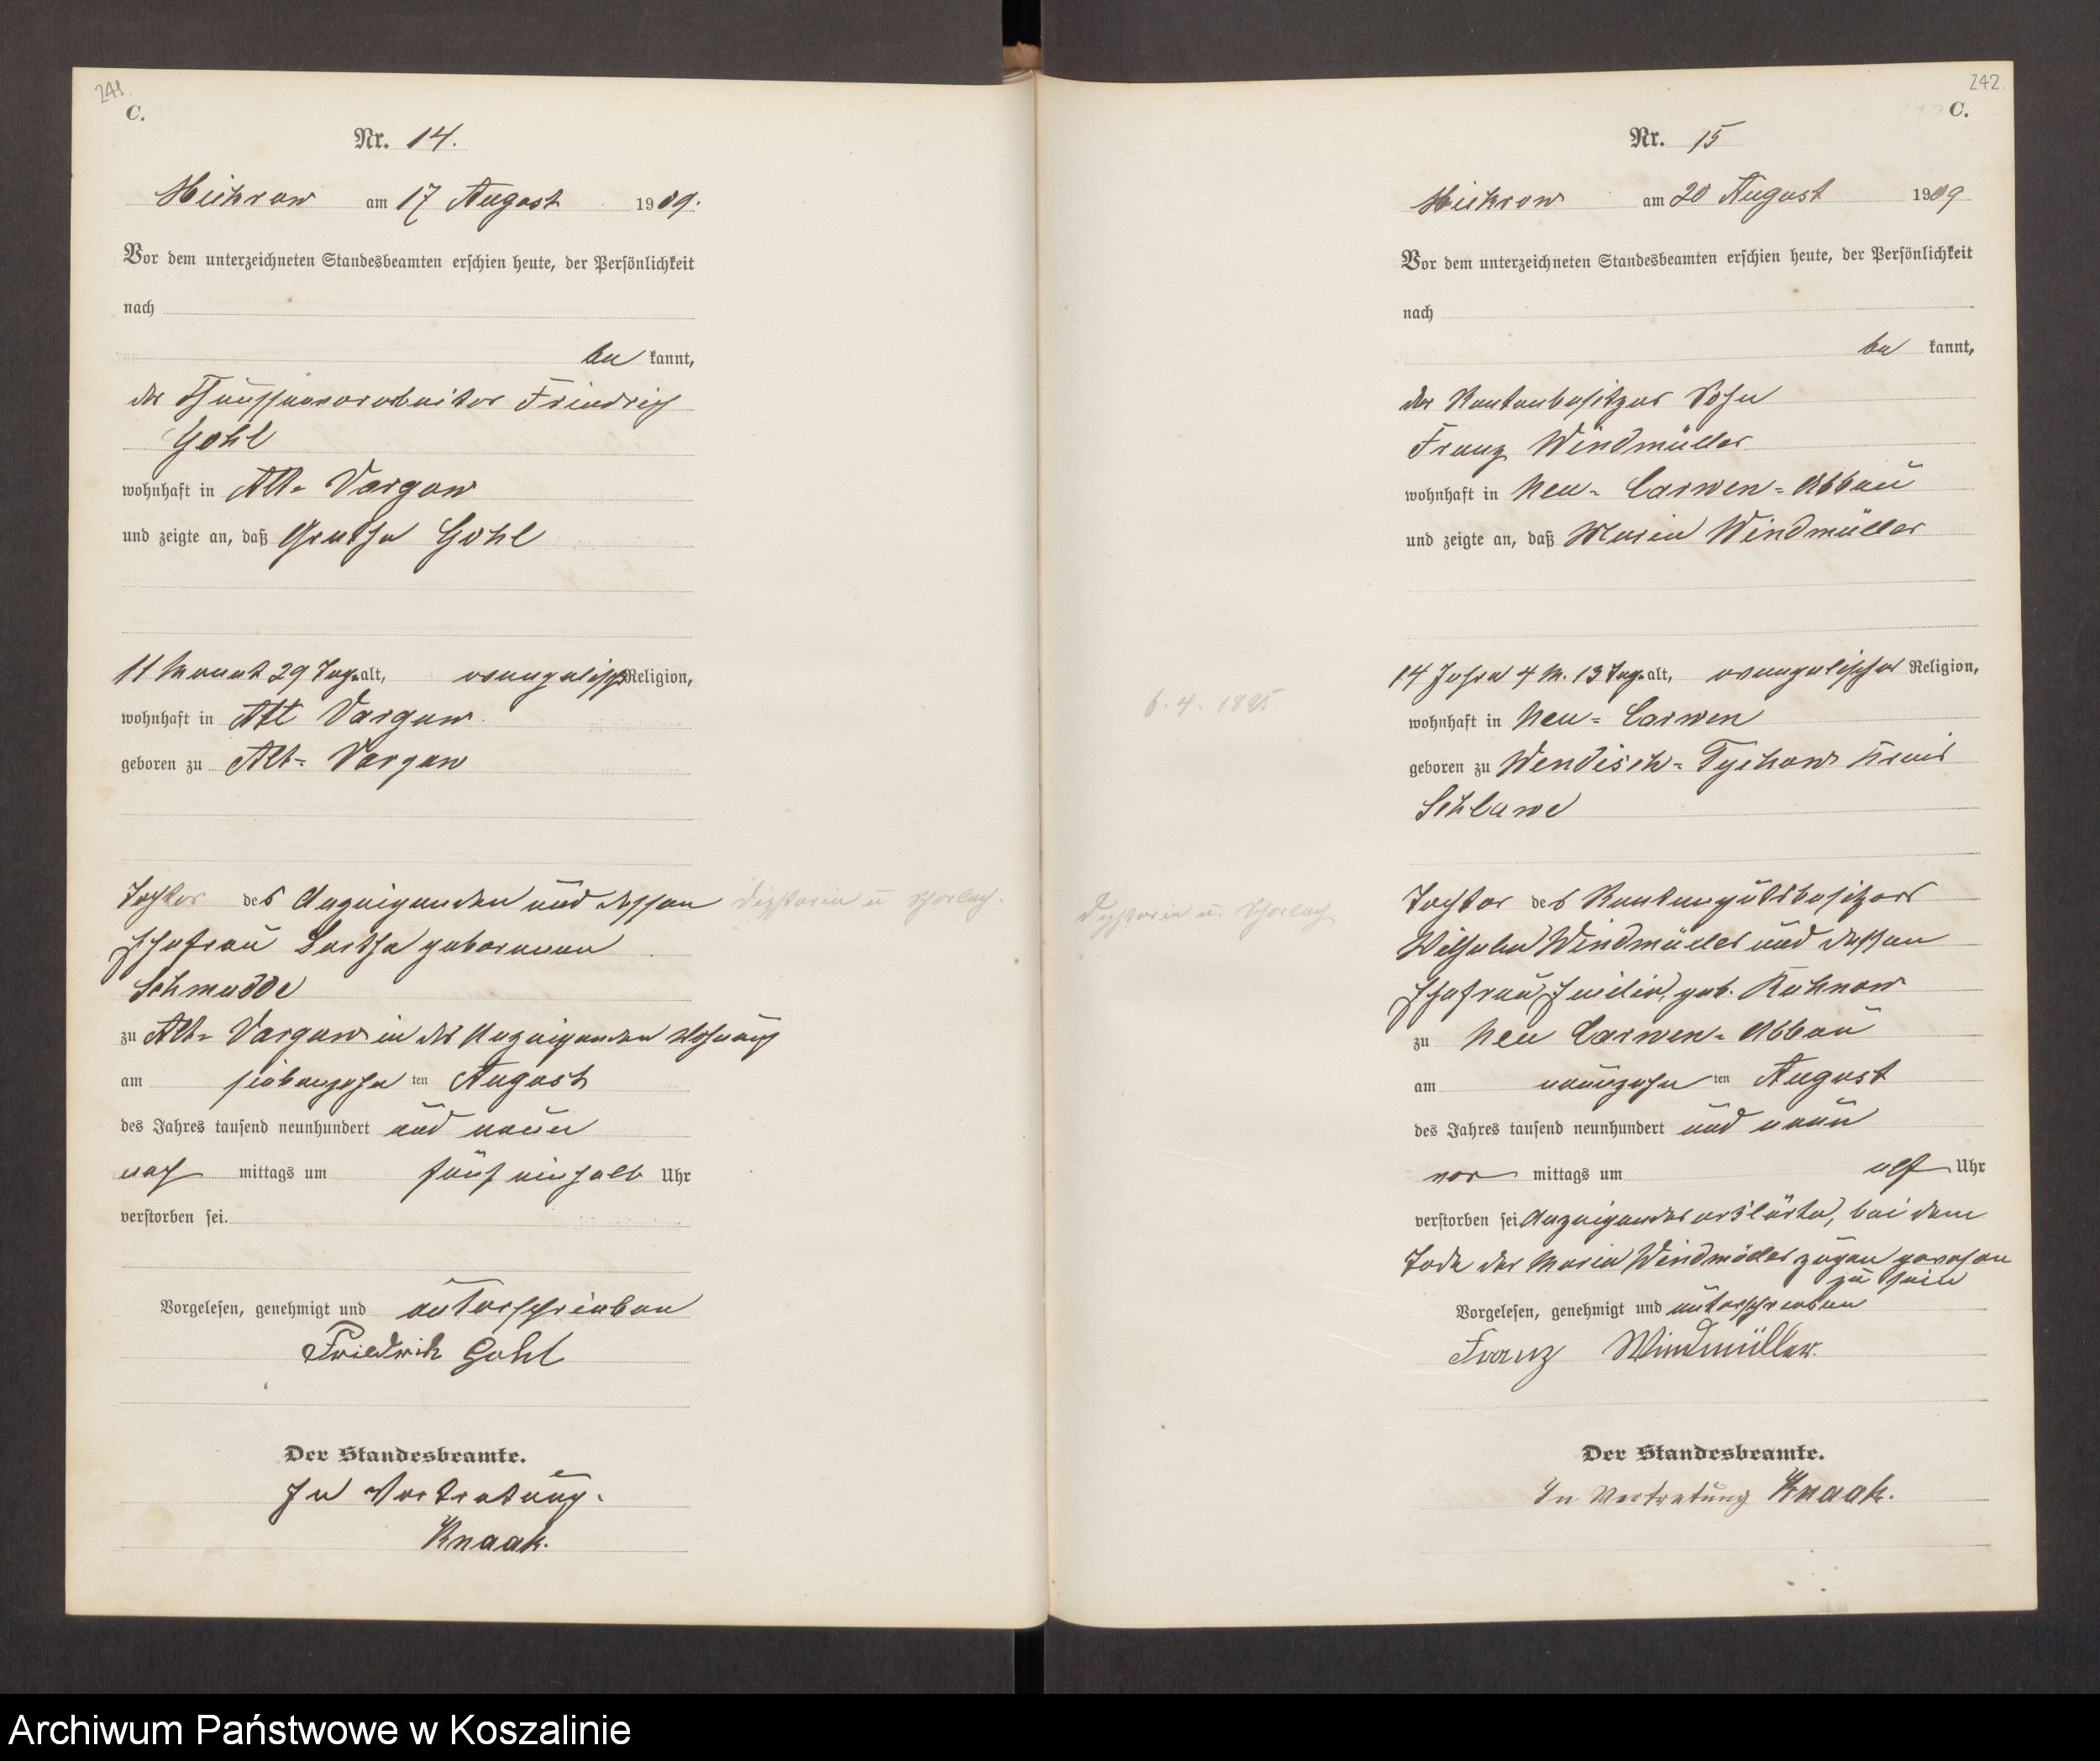 241.
C.
Nr. 14.
Mickrow am 17 August 1909.
Vor dem unterzeichneten Standesbeamten erschien heute, der Persönlichkeit
nach
be kannt,
der Friedrich
Gohl
wohnhaft in Alt- Vargow
und zeigte an, daß Grethe Gohl
11 Monat 29 Tag alt, evangelisch Religion,
wohnhaft in Alt Vargow
geboren zu Alt- Vargow
Tochter des Anzeigenden und dessen
Ehefrau Bertha geborenen
Schmudde
zu Alt- Vargow in des Anzeigenden Wohnung
am siebenzehn ten August
des Jahres tausend neunhundert und neun
nach mittags um fünf einhalb Uhr
verstorben sei.
Vorgelesen, genehmigt und unterschrieben
Friedrich Gohl
Der Standesbeamte.
In Vertretung.
Knaak.
Diphterie u Scharlach.
242.
C.
Nr. 15
Mickrow am 20 August 1909
Vor dem unterzeichneten Standesbeamten erschien heute, der Persönlichkeit
nach
be kannt,
der Rentenbesitzer Sohn
Franz Windmüller
wohnhaft in Neu- Carwen- Abbau
und zeigte an, daß Marie Windmüller
14 Jahre 4 M. 13 Tag alt, evangelischer Religion,
6. 4. 1895
wohnhaft in Neu- Carwen
geboren zu Wendisch- Tychow Kreis
Schlawe
Tochter des Rentengutsbesitzers
Diphterie u. Scharlach
Wilhelm Windmüller und dessen
Ehefrau Emilie, geb. Kuhnow
zu Neu Carwen- Abbau
am neunzehn ten August
des Jahres tausend neunhundert und neun
vor mittags um elf Uhr
verstorben sei Anzeigender erklärte, bei dem
Tode der Marie Windmüller zugen gewesen
zu sein
Vorgelesen, genehmigt und unterschrieben
Franz Windmüller.
Der Standesbeamte.
In Vertretung Knaak.
Archiwum Państwowe w Koszalinie